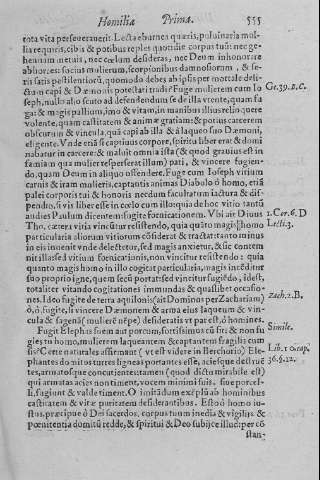 Homilia Prima. 555
tota vita perseuerauerit. Lecta eburnea quæris, puluinaria mol-
lia requiris, cibis & potibus reples quotidie corpus tuū: nec ge-
hennam metuis, nec cœlum desideras, nec Deum inhonorare
abhorres: socius mulierum, scorpionibus damnosiorum, & se-
ris satis pestilentiorū, quomodo debes ab ipsis per mortale deli-
ctum capi & Dæmonis potestati tradi? Fuge mulierem cum Io
seph, nulla alio scuto ad defendendum se de illa vtente, quam fu
ga: & magis pallium, imo & vitam, in manibus illius relinquere
volente, quam castitatem & animæ gratiam: & potius carcerem
obscurum & vincula, quā capi ab illa & à laqueo suo Dæmoni,
eligente. Vnde etsi sit captiuus corpore, spiritu liber erat & domi
nabatur in carcere: & maluit omnia ista (& quod grauius est in
famiam qua mulier resperserat illum) pati, & vincere fugien-
do, quam Deum in aliquo offendere. Fuge cum Ioseph vitium
carnis & iram mulieris, captantis animas Diabolo ô homo, etiā
palei corporis tui & honoris necdum facultatum iactura & dis-
pendio, si vis liber esse in cœlo cum illo: qua de hoc vitio tantū
audies Paulum dicentem: fugite fornicationem. Vbi ait Diuus
Tho. cætera vitia vincitur resistendo, quia quāto magis homo
particularia aliorum vitiorum cōsiderat & tractat: tanto minus
in eis inuenit vnde delectetur, sed magis anxietur, & sūc contem
nit illa: sed vitium fœrnicationis, non vincitur resistendo: quia
quanto magis homo in illo cogitat particularia, magis incēditur
suo proprio igne, quem secū portat: sed vincitur fugiēdo, idest,
totaliter vitando cogitationes immundas & quaslibet occasio-
nes. Ideo fugite de terra aquilonis (ait Dominus per Zachariam)
ô, ô, fugite, si vincere Dæmonem & arma eius laqueum & vin-
cula & sagenā (mulierē nēpe) desideratis vt par est, ô homines.
Fugit Elephas suem aut porcum, fortissimus cū sit: & non fu
gies tu homo, mulierem laqueantem & captantem fragilis cum
sis? Certe naturales affirmant (vt est videre in Berchorio) Ele-
phantes domitos turres ligneas portantes esse, aciesque destruē
tes, armatosque concutientes tamen (quod dictu mirabile est)
qui armatas acies non timent, vocem minimi suis, siue porcel-
li, fugiunt & valde timent. O imitādum exēplū ab hominibus
castitatem & vitæ puritatem desiderantibus. Esto ô homo iu-
stus, præcipue ô Dei sacerdos, corpus tuum inedia & vigilijs &
pœnitentia domitū redde, & spiritui & Deo subijce illud: per cō
stan-
Ge. 39. B. C.
1. Cor. 6. D
Lecti. 3.
Zach. 2. B.
Simile.
Lib. 1 0. cap.
36. §. 12.